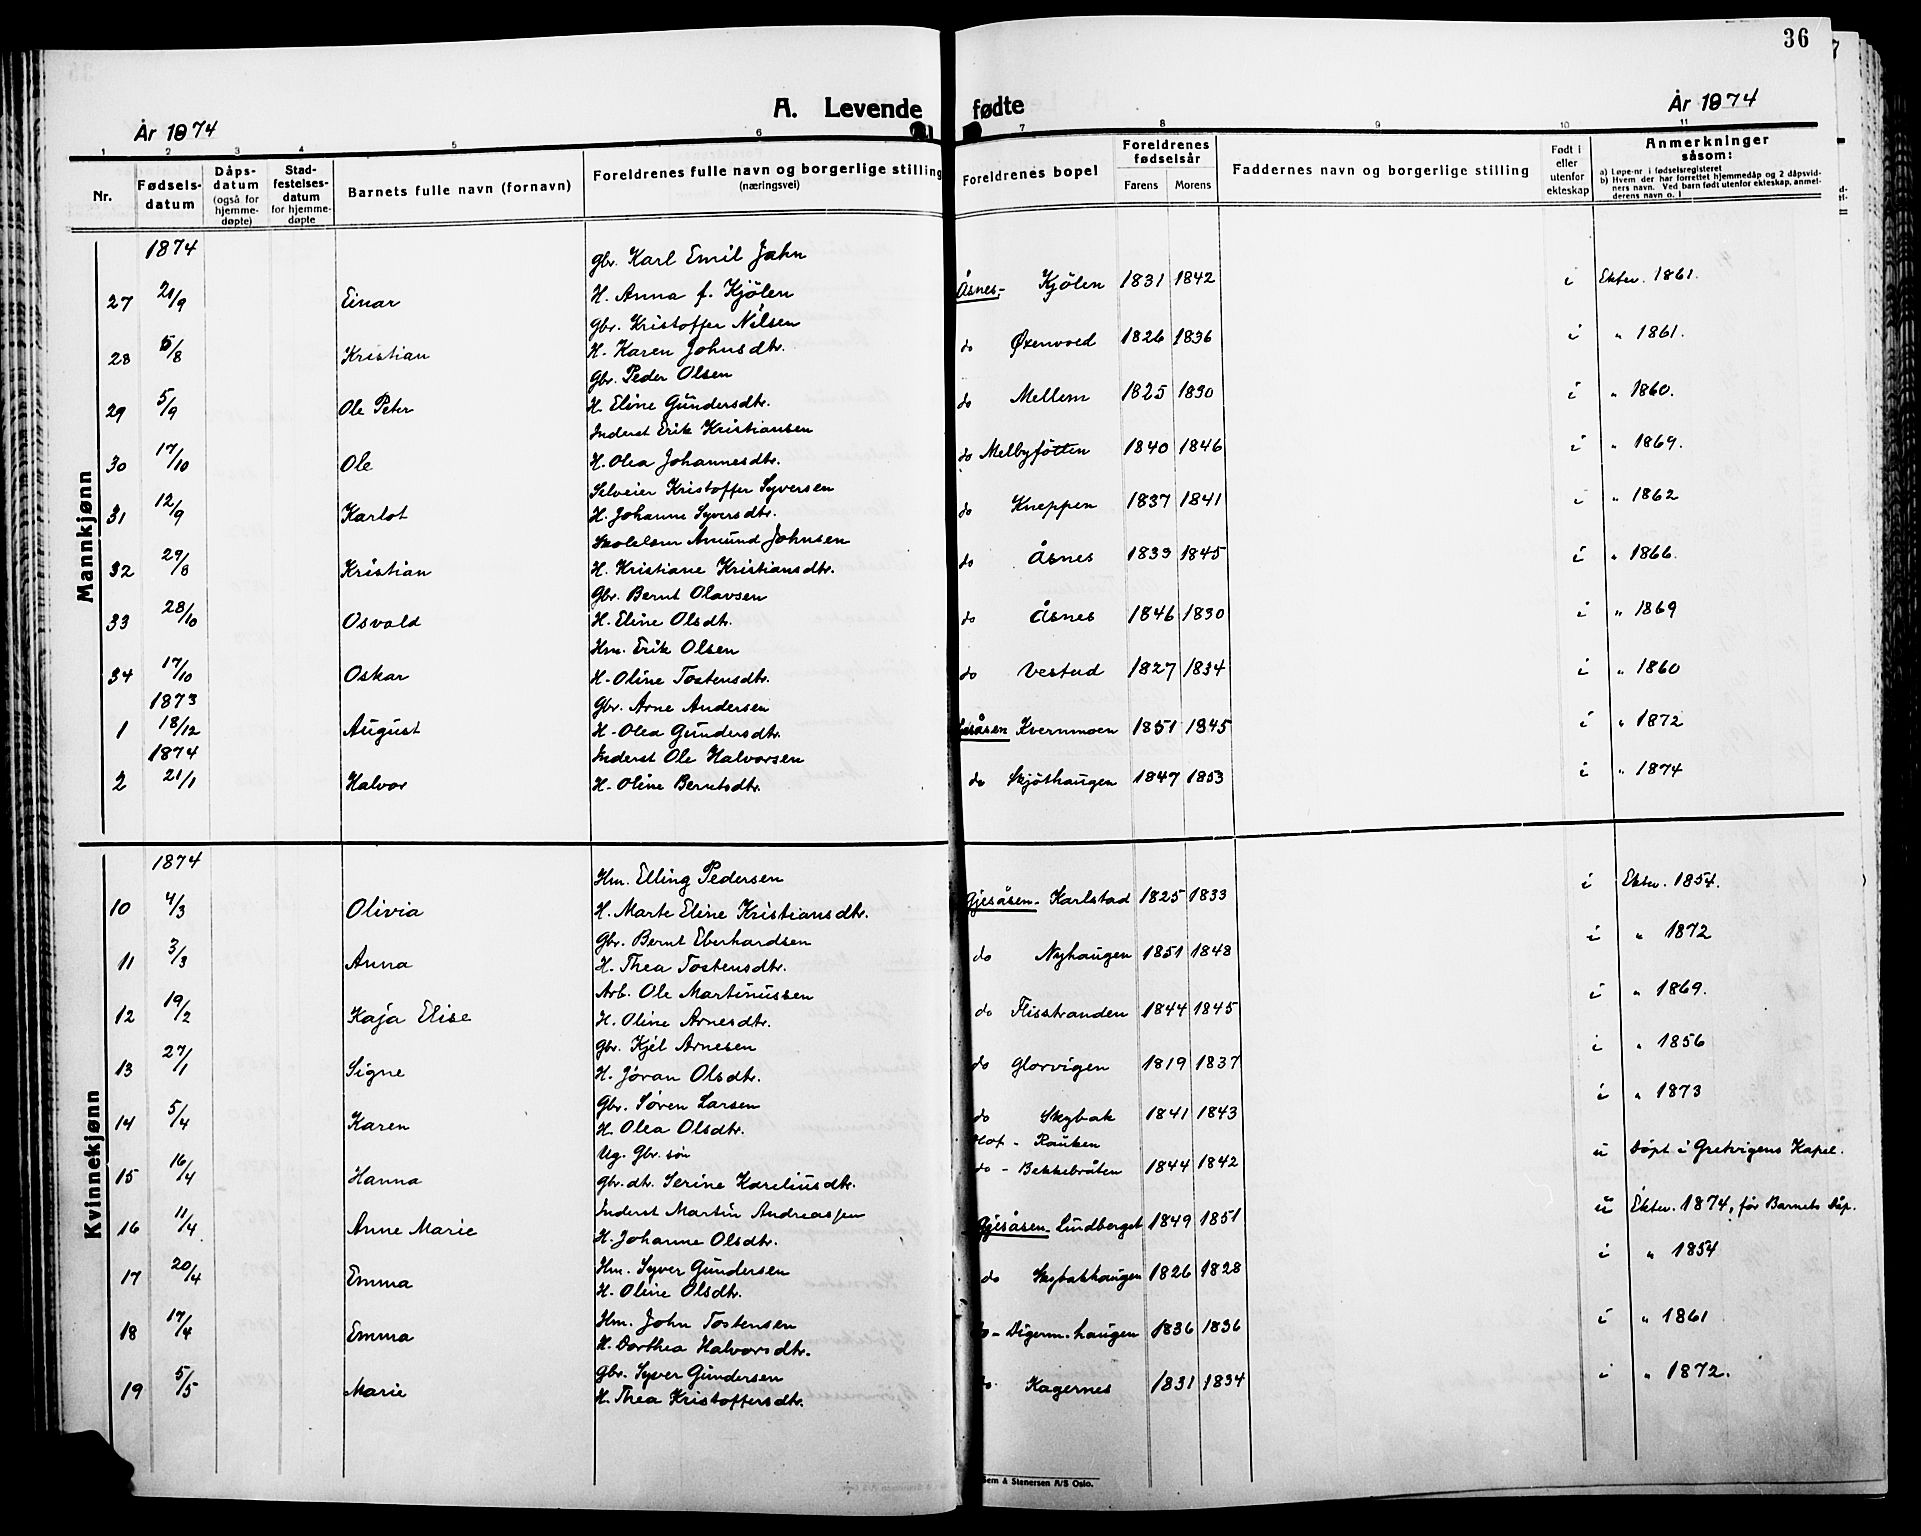 36
A. Levende fødte
År 1874
År 1874
1 2 3 4 5 6 7 8 9 10 11
Nr.
Fødsels-datum
Dåps-datum (også for hjemme-døpte)
Stad-festelses-datum for hjemme-døpte
Barnets fulle navn (fornavn)
Foreldrenes fulle navn og borgerlige stilling (næringsvei)
Foreldrenes bopel
Foreldrenes fødselsår
Farens Morens
Faddernes navn og borgerlige stilling
Født i eller utenfor ekteskap
Anmerkninger såsom:
a) Løpe-nr i fødselsregisteret
b) Hvem der har forrettet hjemmedåp og 2 dåpsvidners navn. Ved barn født utenfor ekteskap, anmelderens navn o. l
Mankjønn
1874
Gbr. Karl Emil Jahn
27 21/9 Einar H. Anna f. Kjölen Åsnes- Kjölen 1831 1842 i Ektev. 1861.
Gbr. Kristoffer Nilsen
28 5/8 Kristian H. Karen Johnsdtr. do Øxenvold 1826 1836 i " 1861.
Gbr. Peder Olsen
29 5/9 Ole Peter H. Eline Gundersdtr. do Mellem 1825 1830 i " 1860.
Inderst Erik Kristiansen
30 17/10 Ole H. Olea Johannesdtr. do Melbyfötten 1840 1846 i " 1869.
Selveier Kristoffer Syversen
31 12/9 Karlot H. Johanne Syversdtr. do Kneppen 1837 1841 i " 1862
Skolelærer Amund Johnsen
32 29/8 Kristian H. Kristiane Kristiansdtr. do Åsnes 1833 1845 i " 1866.
Gbr. Bernt Olavsen
33 28/10 Osvald H. Eline Olsdtr. do Åsnes 1846 1830 i " 1869
Hm. Erik Olsen
34 17/10 Oskar H. Oline Tostensdtr. do Vestad 1827 1834 i " 1860
1873 Gbr. Arne Andersen
1 18/12 August H. Olea Gundersdtr. Gjesåsen Kvernmoen 1851 1845 i " 1872
1874 Inderst Ole Halvorsen
2 21/1 Halvor H. Oline Berntsdtr. do Skjöthaugen 1847 1853 i " 1874
Kvinnekjønn
1874
Hm. Elling Pedersen
10 4/3 Olivia H. Marte Eline Kristiansdtr. Gjesåsen- Karlstad 1825 1833 i Ektev. 1854.
Gbr. Bernt Eberhardsen
11 3/3 Anna H. Thea Tostensdtr. do Nyhaugen 1851 1848 i " 1872
Arb. Ole Martinussen
12 19/2 Kaja Elise H. Oline Arnesdtr. do Flisstranden 1844 1845 i " 1869.
Gbr. Kjel Arnesen
13 27/1 Signe H. Jöran Olsdtr. do Glorvigen 1819 1837 i " 1856
Gbr. Søren Larsen
14 5/4 Karen H. Olea Olsdtr. do Skybak 1841 1843 i " 1873
Ug. Gbr. sön Hof - Rauken
15 16/4 Hanna Gbr. dtr. Serine Kareliusdtr. do - Bekkebråten 1844 1842 u Döpt i Gretvigens Kapel.
Inderst Martin Andreassen
16 11/4 Anne Marie H. Johanne Olsdtr. Gjesåsen- Lindberget 1849 1851 u Ektev. 1874, för Barnets Dåp.
Hm. Syver Gundersen
17 20/4 Emma H. Oline Olsdtr. do Skybakhaugen 1826 1828 i " 1854
Hm. John Tostensen
18 17/4 Emma H. Dorthea Halvorsdtr. do- Digerm. haugen 1836 1836 i " 1861
Gbr. Syver Gundersen
19 5/5 Marie H. Thea Kristoffersdtr. do. Kagernes 1831 1834 i " 1872.
Sem & Stenersen A/S Oslo.